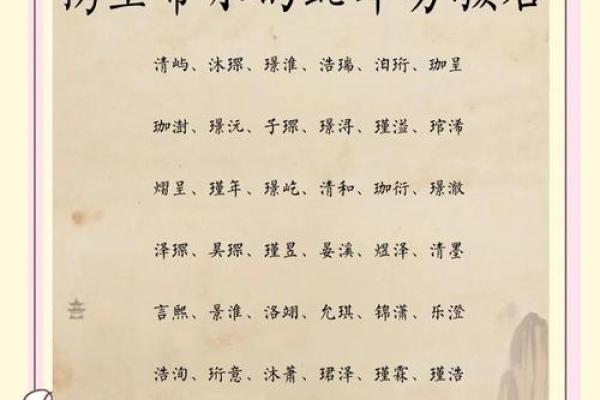 清屿、沐琛、璟淮、浩瑞、洎珩、珈呈
珈澍、璟沅、子琛、璟浔、瑾溢、琯浠
熠呈、瑾年、璟屹、清和、珈衍、璟澈
泽琛、昊琛、瑾昱、晏溪、煜泽、清墨
言熙、景淮、洛翊、允琪、锦潇、乐澄
浩洵、珩意、沐萧、珺泽、瑾霖、瑾浩